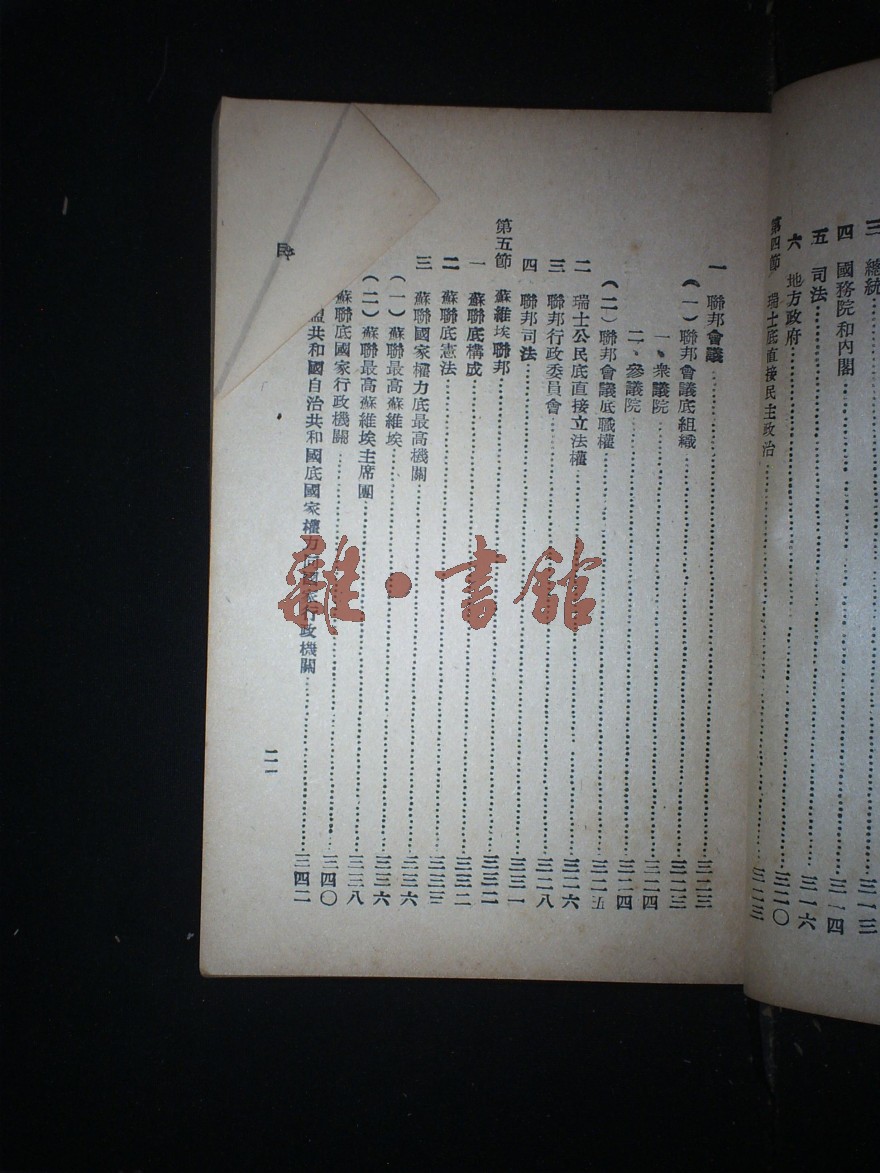 三 總統……三一三
四 國務院和內閣……三一四
五 司法……三一六
六 地方政府……三二〇
第四節 瑞士底直接民主政治……三二三
一 聯邦會議……三二三
(一)聯邦會議底組織……三二三
一、衆議院……三二四
二、參議院……三二四
(二)聯邦會議底職權……三二五
二 瑞士公民底直接立法權……三二六
三 聯邦行政委員會……三二八
四 聯邦司法……三三一
第五節 蘇維埃聯邦……三三二
一 蘇聯底構成……三三二
二 蘇聯底憲法……三三三
三 蘇聯國家權力底最高機關……三三六
(一)蘇聯最高蘇維埃……三三六
(二)蘇聯最高蘇維埃主席團……三三八
蘇聯底國家行政機關……三四〇
盟共和國自治共和國底國家權力國家行政機關……三四二
二一
雜·書館